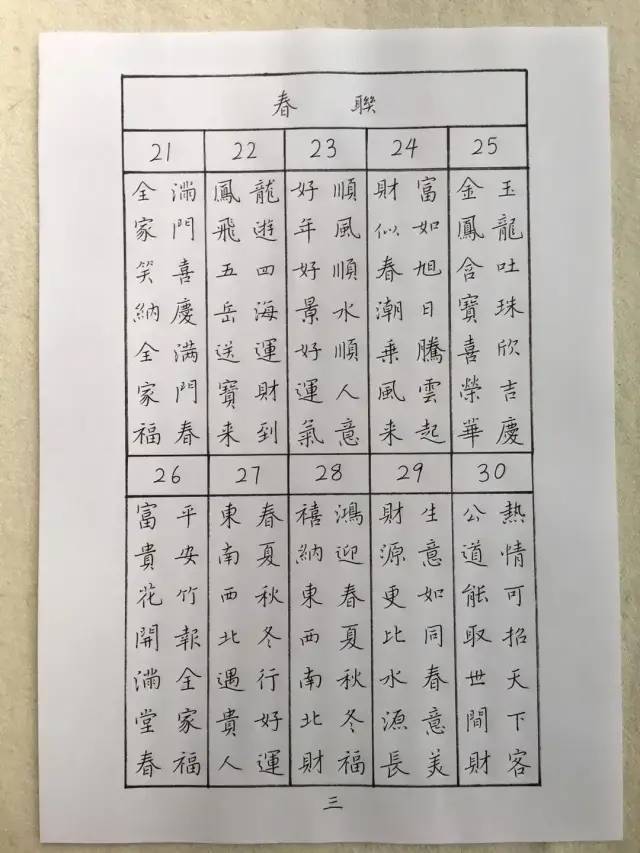 春聯
21
滿門喜慶滿門春
全家笑納全家福
22
龍遊四海運財到
鳳飛五岳送寶来
23
順風順水順人意
好年好景好運氣
24
富如旭日騰雲起
財似春潮乗風来
25
玉龍吐珠欣吉慶
金鳳含寶喜榮華
26
平安竹報全家福
富貴花開滿堂春
27
春夏秋冬行好運
東南西北遇貴人
28
鴻迎春夏秋冬福
禧納東西南北財
29
生意如同春意美
財源更比水源長
30
熱情可招天下客
公道能取世間財
三